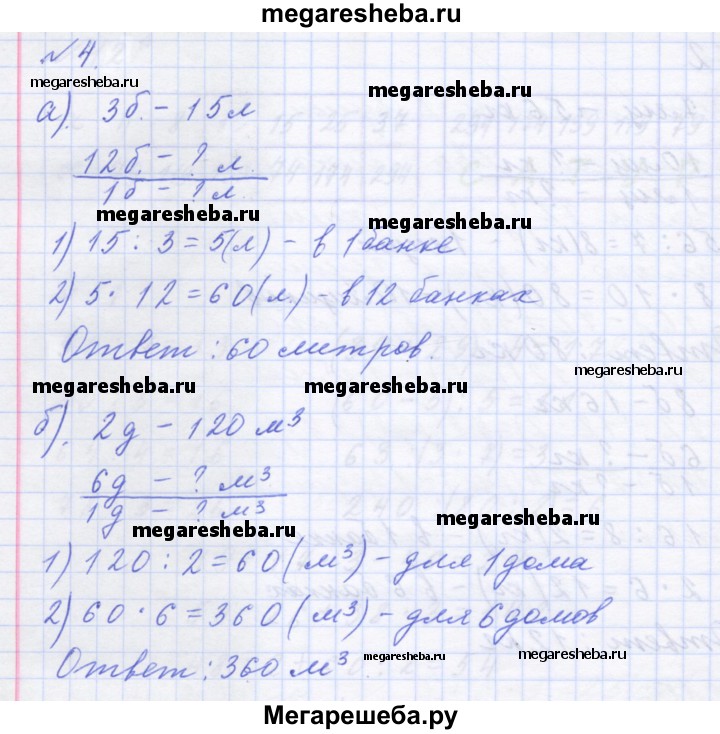 megaresheba.ru
№ 4.
megaresheba.ru
megaresheba.ru
а). 3б. – 15 л
12б. – ? л.
1б – ? л
megaresheba.ru
megaresheba.ru
1) 15 : 3 = 5(л) – в 1 банке
2) 5 · 12 = 60(л) – в 12 банках
Ответ : 60 литров.
megaresheba.ru
megaresheba.ru
megaresheba.ru
megaresheba.ru
б). 2д – 120 м³
6д – ? м³
1д – ? м³
megaresheba.ru
megaresheba.ru
1) 120 : 2 = 60 (м³) – для 1 дома
2) 60 · 6 = 360 (м³) – для 6 домов
Ответ : 360 м³
megaresheba.ru
Мегарешеба.ру